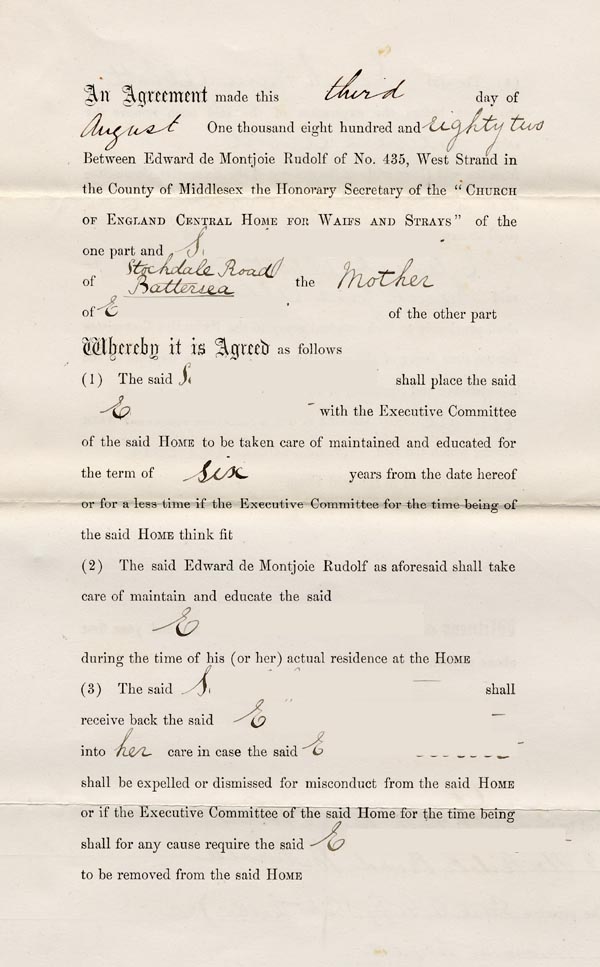 An Agreement made this third day of
August One thousand eight hundred and eighty two
Between Edward de Montjoie Rudolf of No. 435, West Strand in
the County of Middlesex the Honorary Secretary of the "CHURCH
OF ENGLAND CENTRAL HOME FOR WAIFS AND STRAYS" of the
one part and S.
of Stockdale Road Battersea the Mother
of E of the other part
Whereby it is Agreed as follows
(1) The said S. shall place the said
E with the Executive Committee
of the said HOME to be taken care of maintained and educated for
the term of six years from the date hereof
or for a less time if the Executive Committee for the time being of
the said HOME think fit
(2) The said Edward de Montjoie Rudolf as aforesaid shall take
care of maintain and educate the said
E
during the time of his (or her) actual residence at the HOME
(3) The said S. shall
receive back the said E
into her care in case the said E
shall be expelled or dismissed for misconduct from the said HOME
or if the Executive Committee of the said Home for the time being
shall for any cause require the said E
to be removed from the said HOME